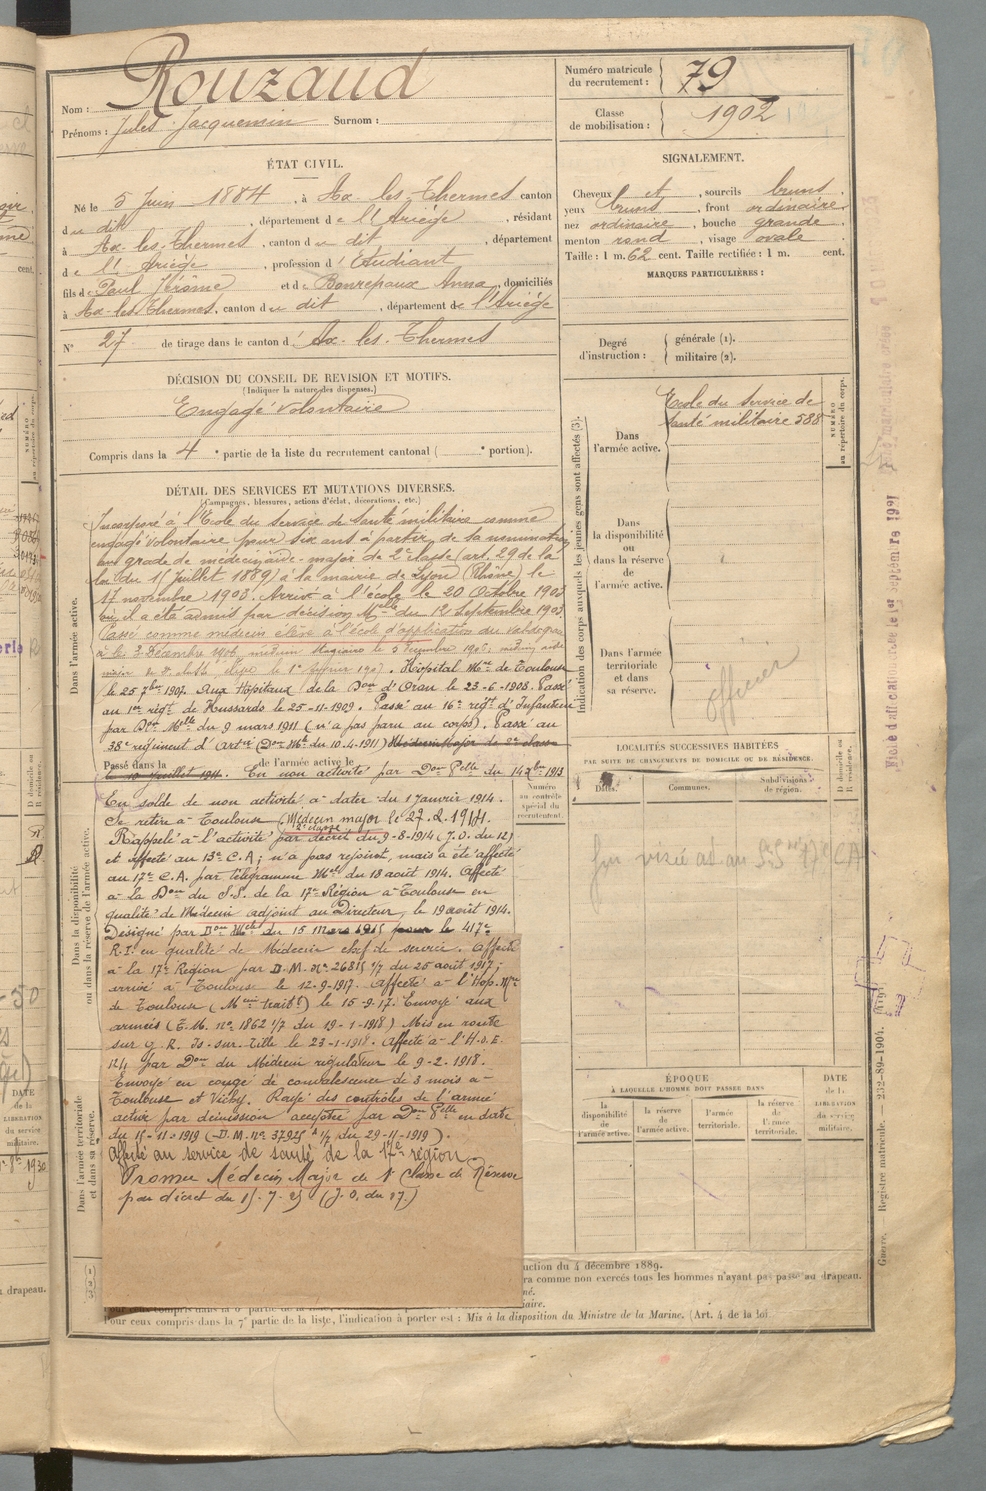 Nom : Rouzaud
Prénoms : Jules Jacquemin Surnom :
Numéro matricule du recrutement : 79
Classe de mobilisation : 1902
ÉTAT CIVIL.
Né le 5 Juin 1884, à Ax-les-Thermes canton
du dit, département de l'Ariège, résidant
à Ax-les-Thermes, canton du dit, département
de l'Ariège, profession d'Etudiant
fils de Paul Jérôme et de Bonrepaux Anna, domiciliés
à Ax-les-Thermes, canton du dit, département de l'Ariège
N° 27 de tirage dans le canton d'Ax-les-Thermes
SIGNALEMENT.
Cheveux et, sourcils bruns.
yeux bruns, front ordinaire,
nez ordinaire, bouche grande
menton rond, visage ovale
Taille : 1 m. 62 cent. Taille rectifiée : 1 m. cent.
MARQUES PARTICULIÈRES :
Degré d'instruction : générale (1).
militaire (2).
DÉCISION DU CONSEIL DE REVISION ET MOTIFS.
(Indiquer la nature des dispenses.)
Engagé volontaire
Compris dans la 4e partie de la liste du recrutement cantonal ( e portion).
DÉTAIL DES SERVICES ET MUTATIONS DIVERSES.
(Campagnes, blessures, actions d'éclat, décorations, etc.)
Incorporé à l'Ecole du Service de Santé militaire comme
engagé volontaire pour six ans à partir de sa nomination
au grade de médecin aide-major de 2e classe (art. 29 de la
loi du 15 Juillet 1889) à la mairie de Lyon (Rhône) le
17 novembre 1903. Arrivé à l'école le 20 Octobre 1903
où il a été admis par décision Mlle du 12 Septembre 1903
Passé comme médecin élève à l'école d'application du Val de grâce
le 3 Décembre 1906, médecin
major de 2e classe le 1er février 1907. Hôpital Mre de Toulouse
le 25 7bre 1907. Aux Hôpitaux de la Don d'Oran le 23-6-1908. Passé
au 1er régt de Hussards le 25-11-1909. Passé au 16e régt d'Infanterie
par Don Mlle du 9 mars 1911 (n'a pas paru au corps). Passé au
38e régiment d'Artie (Don Mle du 10.4-1911) Médecin Major de 2e classe
Passé dans la de l'armée active le
le 10 Juillet 1911. En non activité par Don Pelle du 14 Xbre 1913
En solde de non activité à dater du 1 Janvier 1914.
Se retire à Toulouse (Médecin major 2e classe le 27.2.1914.
Rappelé à l'activité par décret du 9-8-1914 (J.O. du 12)
et affecté au 15e C.A; n'a pas rejoint, mais a été affecté
au 17e C.A. par télégramme Mel du 18 août 1914. Affecté
à la Don du S.S. de la 17e Région à Toulouse en
qualité de Médecin adjoint au Directeur, le 19 août 1914.
Désigné par Don Mlle du 15 Mars 1915 pour le 417e
R.I. en qualité de Médecin chef de service. Affecté
à la 17e Région par D.M. No 26815 1/7 du 25 août 1917;
arrivé à Toulouse le 12-9-1917. Affecté à l'Hop. Mre
de Toulouse (Min trait!) le 15-9-17. Envoyé aux
armées (T.M. no 1862 1/7 du 19-1-1918) Mis en route
sur G.R. Is-sur-Tille le 23-1-1918. Affecté à l'H.O.E.
124 par Don du Médecin régulateur le 9-2-1918.
Envoyé en congé de convalescence de 3 mois à
Toulouse et Vichy. Rayé des contrôles de l'armée
active par démission acceptée par Don Pelle en date
du 15-11-1919 (D.M. no 37925 1/7 du 29-11-1919).
Affecté au service de santé de la 17e région
Promu Médecin Major de 1e Classe de Réserve
par décret du 15-7-25 (J.O. du 17.)
Dans l'armée active.
Dans la disponibilité ou dans la réserve de l'armée active.
Dans l'armée territoriale et dans sa réserve.
Numéro au contrôle spécial du recrutement.
Indication des corps auxquels les jeunes gens sont affectés (3).
Dans l'armée active.
Ecole du Service de
Santé militaire 588
Dans la disponibilité ou dans la réserve de l'armée active.
Dans l'armée territoriale et dans sa réserve.
officier
NUMÉRO au répertoire du corps.
LOCALITÉS SUCCESSIVES HABITÉES
PAR SUITE DE CHANGEMENTS DE DOMICILE OU DE RÉSIDENCE.
Dates. Communes. Subdivisions de région.
D domicile ou R résidence.
ÉPOQUE
À LAQUELLE L'HOMME DOIT PASSER DANS
la disponibilité de l'armée active.
la réserve de l'armée active.
l'armée territoriale.
la réserve de l'armée territoriale.
DATE de la LIBÉRATION du service militaire.
uction du 4 décembre 1889.
ra comme non exercés tous les hommes n'ayant pas passé au drapeau.
Pour ceux compris dans la 7e partie de la liste, l'indication à porter est : Mis à la disposition du Ministre de la Marine. (Art. 4 de la loi
Guerre. Registre matricule. 232-89-1904.